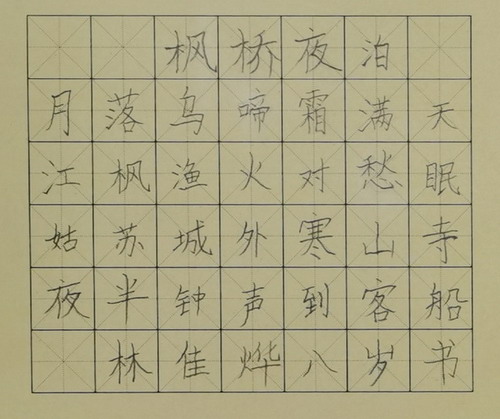 枫桥夜泊
月落乌啼霜满天
江枫渔火对愁眠
姑苏城外寒山寺
夜半钟声到客船
林佳烨八岁书